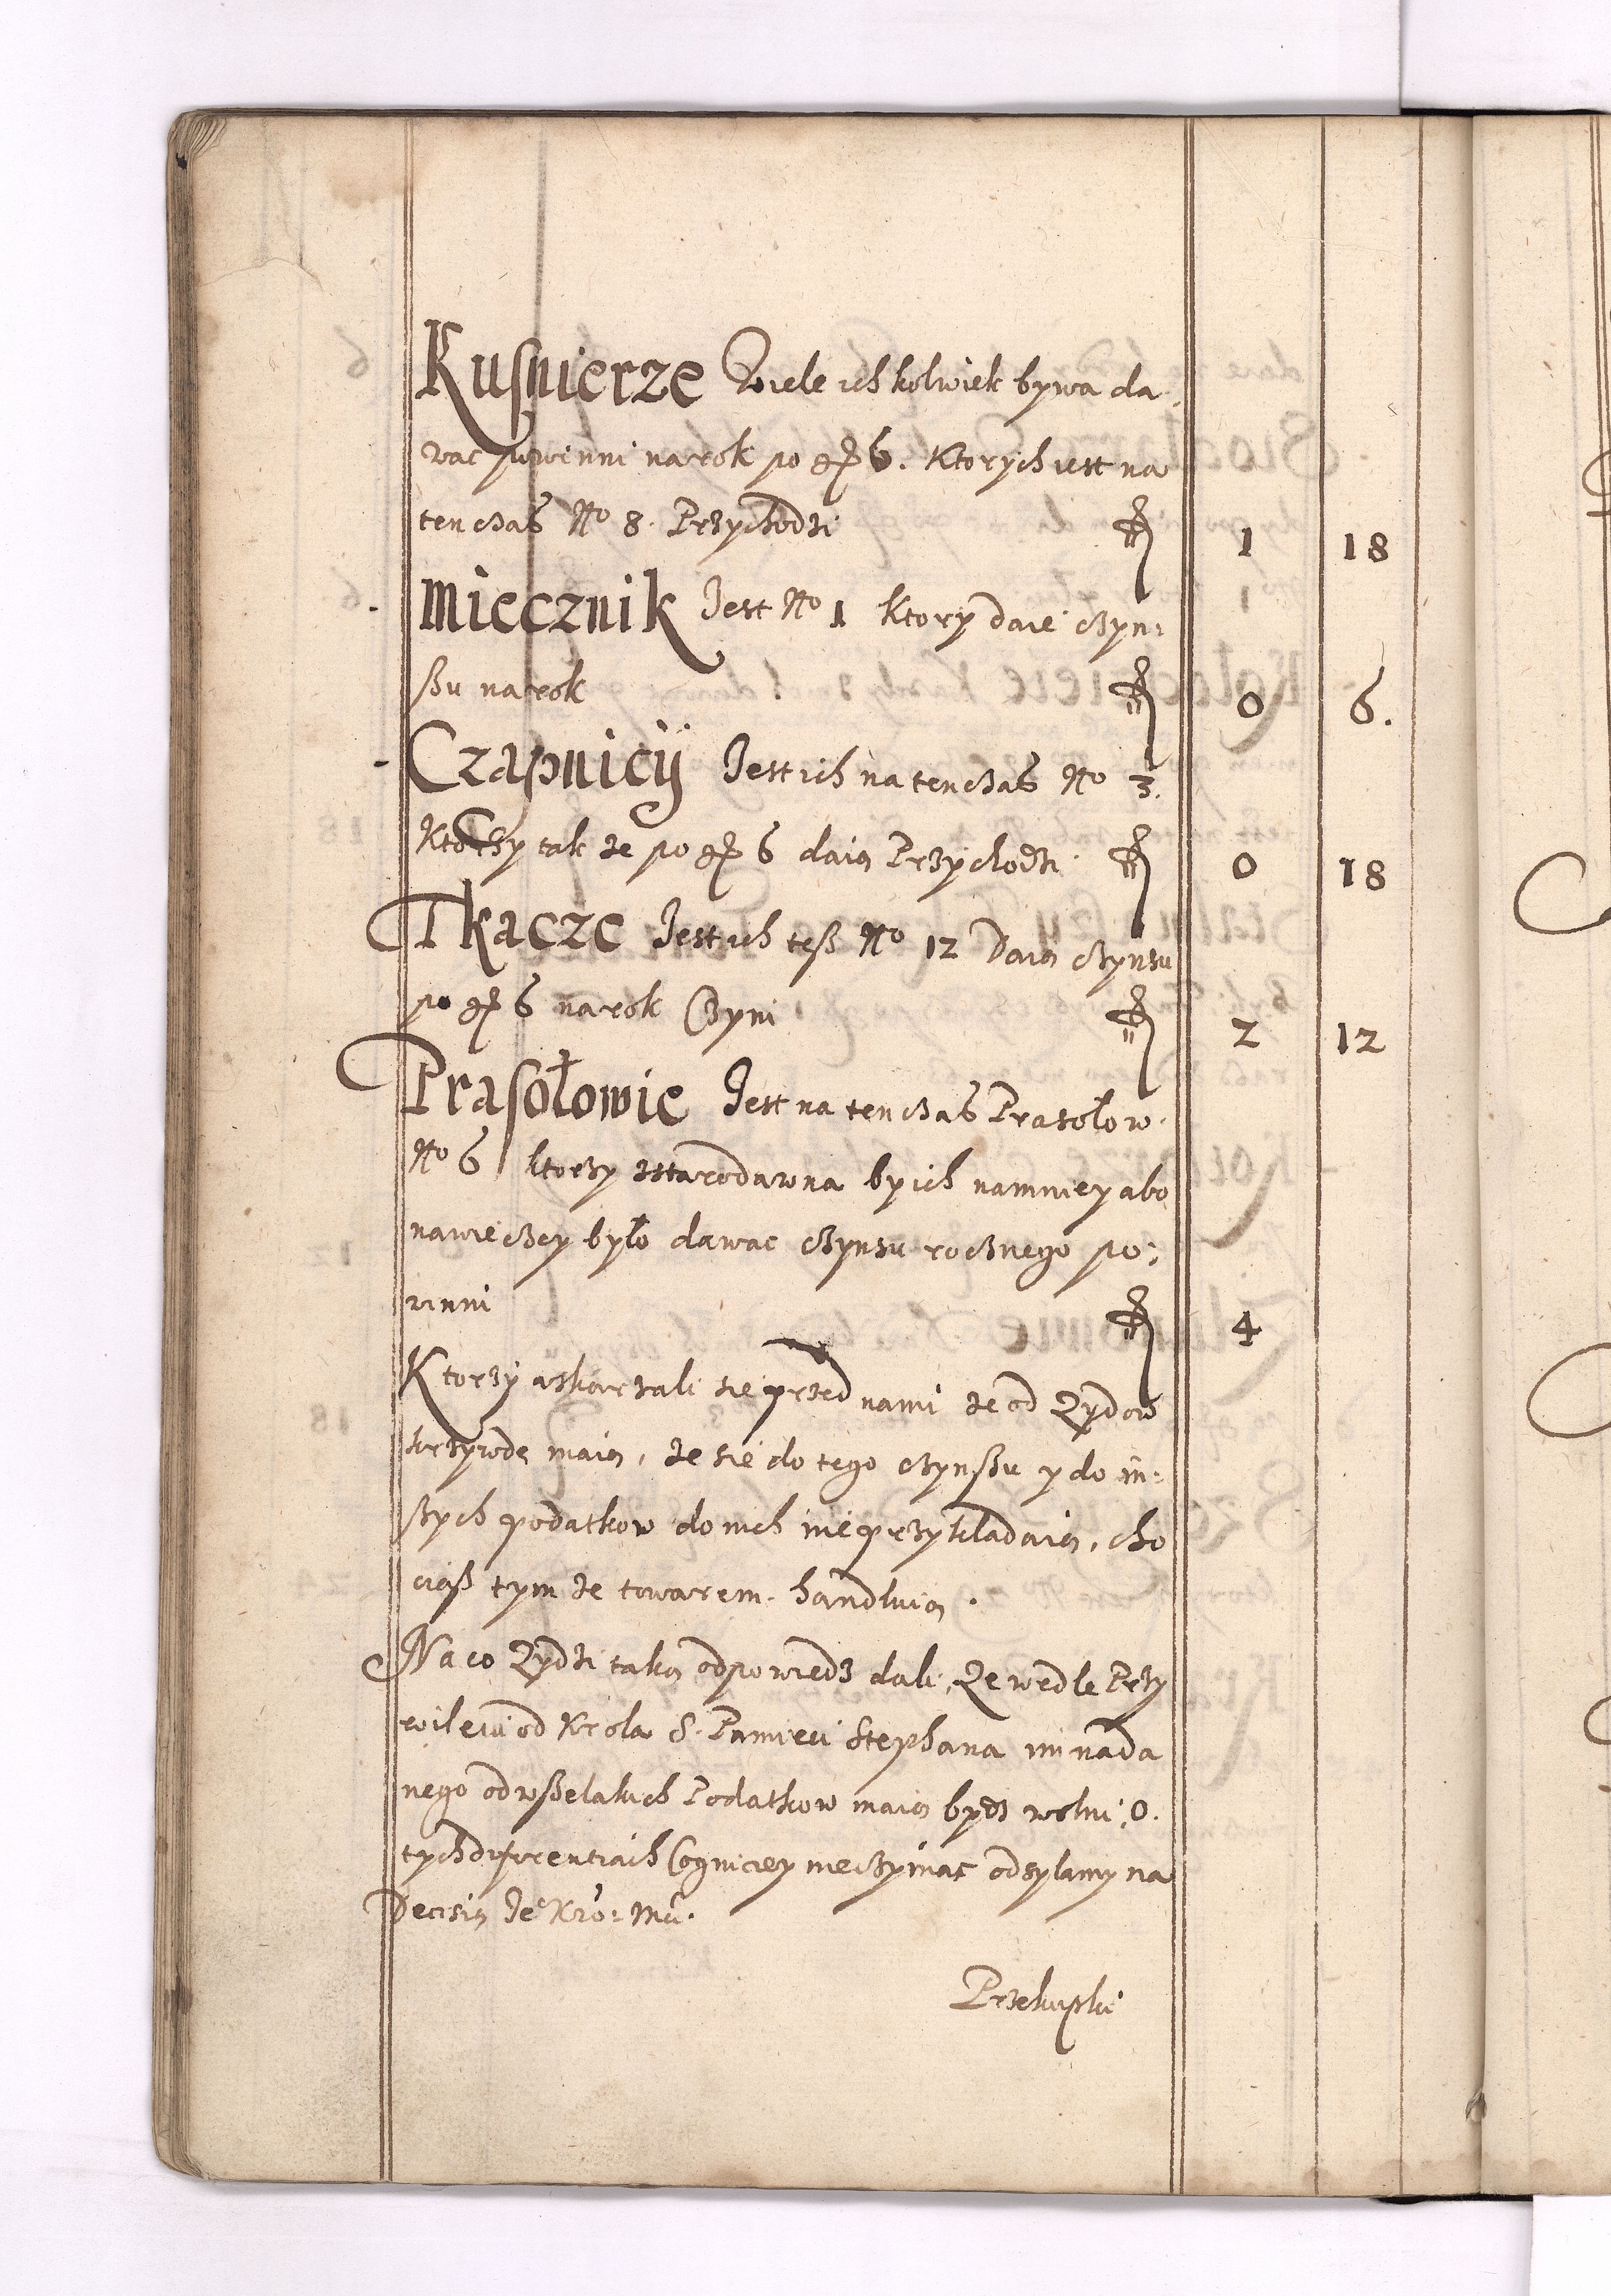 Kuſnierze Wiele ich kolwiek bywa da
wac powinni na rok po gr 6. Ktorych iest na
ten czas No 8. Przychodzi fl 1 18
Miecznik Jest No 1 Ktory daie czyn:
ßu na rok fl 0 6.
Czapnicÿ Jest ich na ten czas No 3.
Ktorzy tak ze po gr 6 daią Przychodzi fl 0 18
Tkacze Jest ich teß No 12 Daią czynsu
po gr 6 na rok Czyni fl 2 12
Praſołowie Jest na ten czas Prasołow
No 6 ktorzy zstarodawna by ich namniey abo
nawieczey było dawac czynsu rocznego po:
winni fl 4
Ktorzy uskarzali sie przed nami ze od Zydow
krzywdę maią, ze sie do tego czynßu y do in:
szych podatkow do nich nie przykładaią, cho
ciaß tym ze towarem handluią.
Na co Zydzi taką odpowiedz dali, Ze wedle Przy
wileiu od Krola S. Pamieci Stephana im nada
nego od wßelakich Podatkow maią bydz wolni, O
tych differentiach Cogniciey nie czyniac odsylamy na
Decisią Je° Kro: Mci.
Przekupki